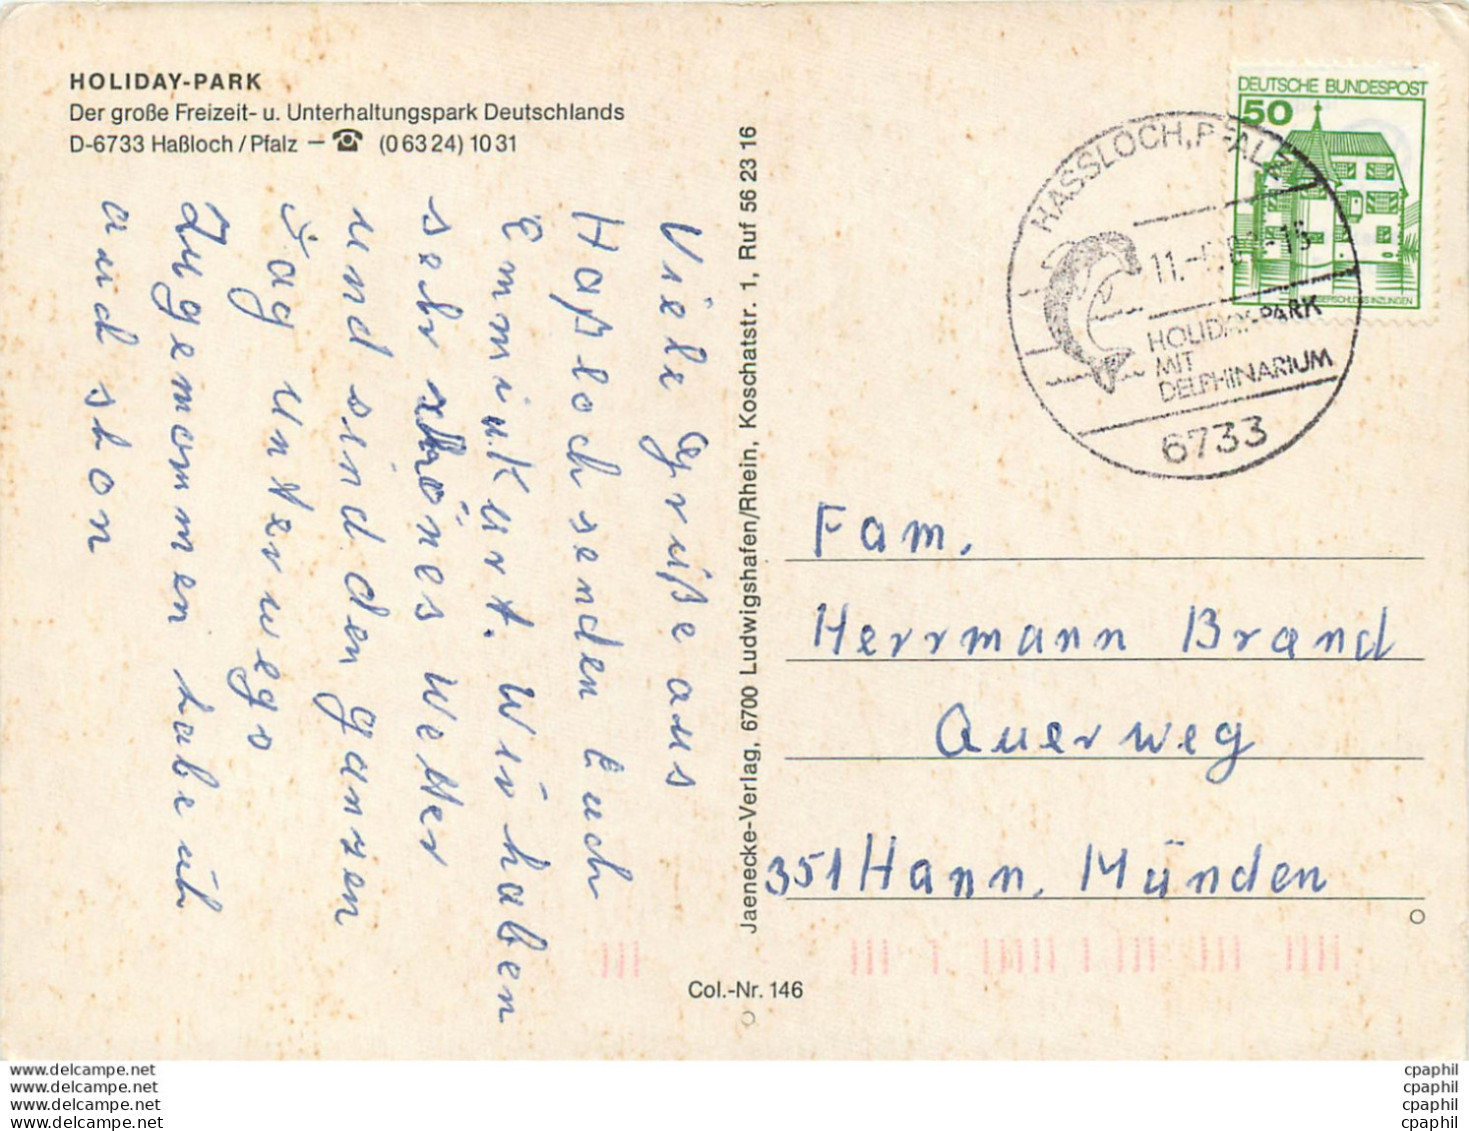 HOLIDAY-PARK
Der große Freizeit- u. Unterhaltungspark Deutschlands
D-6733 Haßloch / Pfalz — ☎ (0 63 24) 10 31
Viele Grüße aus
Haßloch senden Euch
Emmi u. Kurt. Wir haben
sehr schönes Wetter
und sind den ganzen
Tag unterwegs
Zugenommen habe ich
auch schon
Jaenecke-Verlag, 6700 Ludwigshafen/Rhein, Koschatstr. 1, Ruf 56 23 16
Col.-Nr. 146
DEUTSCHE BUNDESPOST
50
HASSLOCH, PFALZ
11.
HOLIDAY-PARK
MIT
DELPHINARIUM
6733
Fam.
Herrmann Brand
Auerweg
351 Hann. Münden
www.delcampe.net
www.delcampe.net
www.delcampe.net
www.delcampe.net
cpaphil
cpaphil
cpaphil
cpaphil